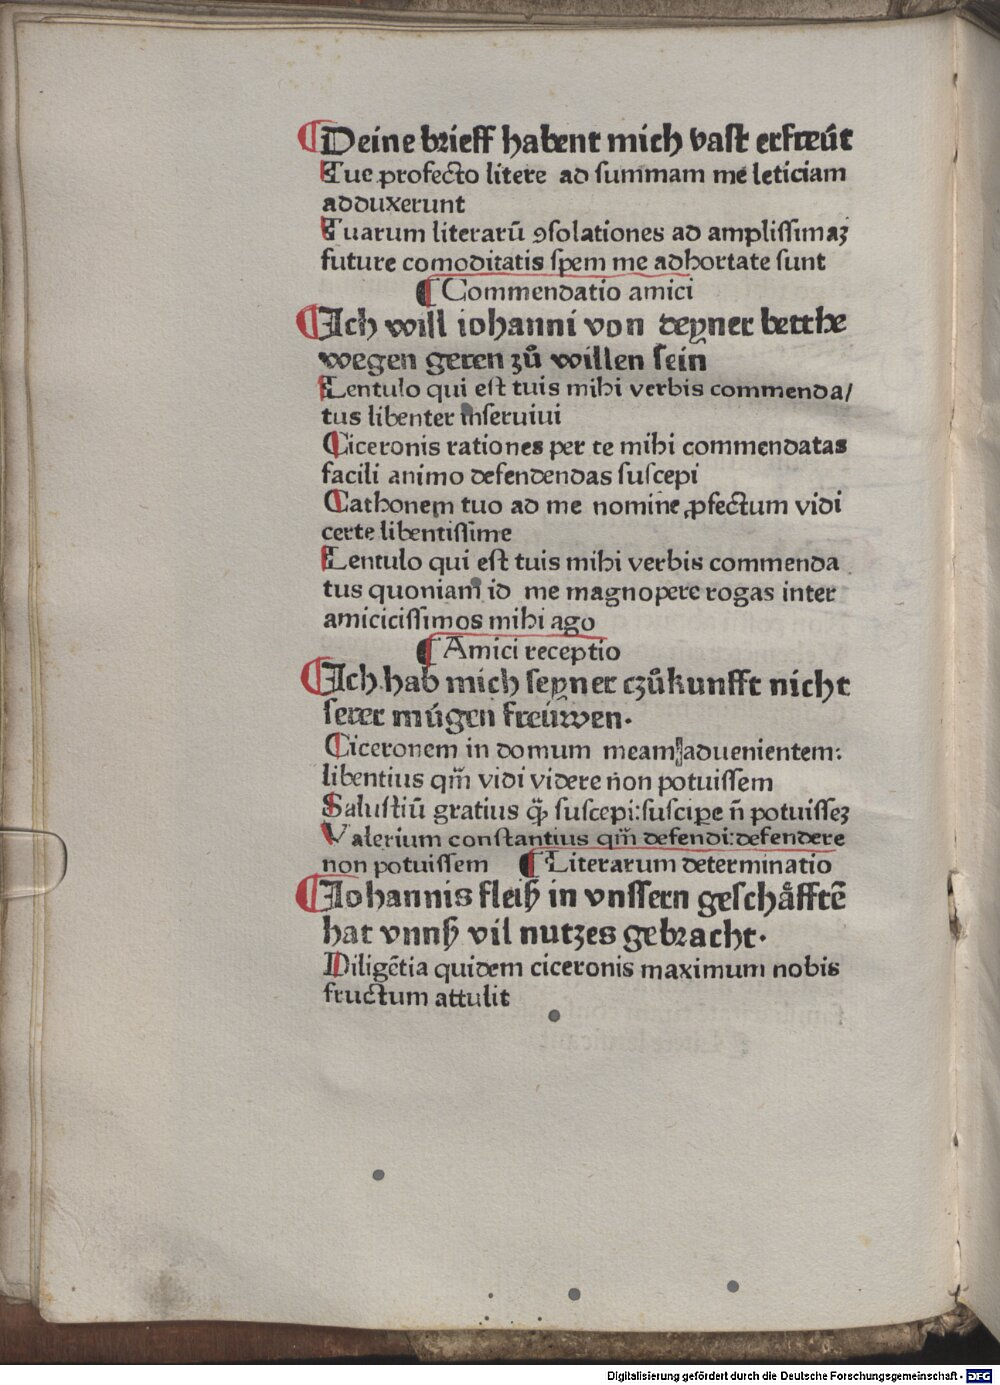 Deine brieff habent mich vast erfreút
Tue profecto litere ad summam me leticiam
adduxerunt
Tuarum literarū ꝯsolationes ad amplissimaȝ
future comoditatis spem me adhortate sunt
¶ Commendatio amici
Ich will iohanni von deyner betthe
wegen geren zů willen sein
Lentulo qui est tuis mihi verbis commenda/
tus libenter inseruiui
Ciceronis rationes per te mihi commendatas
facili animo defendendas suscepi
Cathonem tuo ad me nomine ꝓfectum vidi
certe libentissime
Lentulo qui est tuis mihi verbis commenda
tus quoniam id me magnopere rogas inter
amicicissimos mihi ago
¶ Amici receptio
Ich hab mich seyner czůkunfft nicht
serer múgen freúwen.
Ciceronem in domum meam aduenientem:
libentius qm̄ vidi videre non potuissem
Salustiū gratius qꝫ̄ suscepi:suscipe n̄ potuisseȝ
Valerium constantius qm̄ defendi:defendere
non potuissem ¶ Literarum determinatio
Iohannis fleiß in vnssern geschåfftē
hat vnnß vil nutzes gebracht.
Diligētia quidem ciceronis maximum nobis
fructum attulit
Digitalisierung gefördert durch die Deutsche Forschungsgemeinschaft - DFG